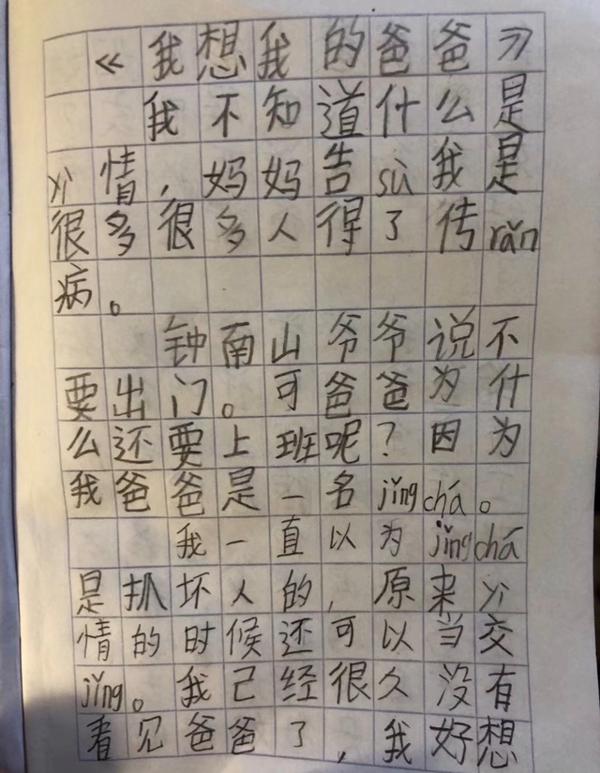 《我想我的爸爸》
我不知道什么是
yì情，妈妈告sù我是
很多很多人得了传rǎn
病。
钟南山爷爷说不
要出门。可爸爸为什
么还要上班呢？因为
我爸爸是一名jǐngchá。
我一直以为jǐngchá
是扒坏人的，原来yì
情的时候还可以当交
jǐng。我己经很久没有
看见爸爸了，我好想